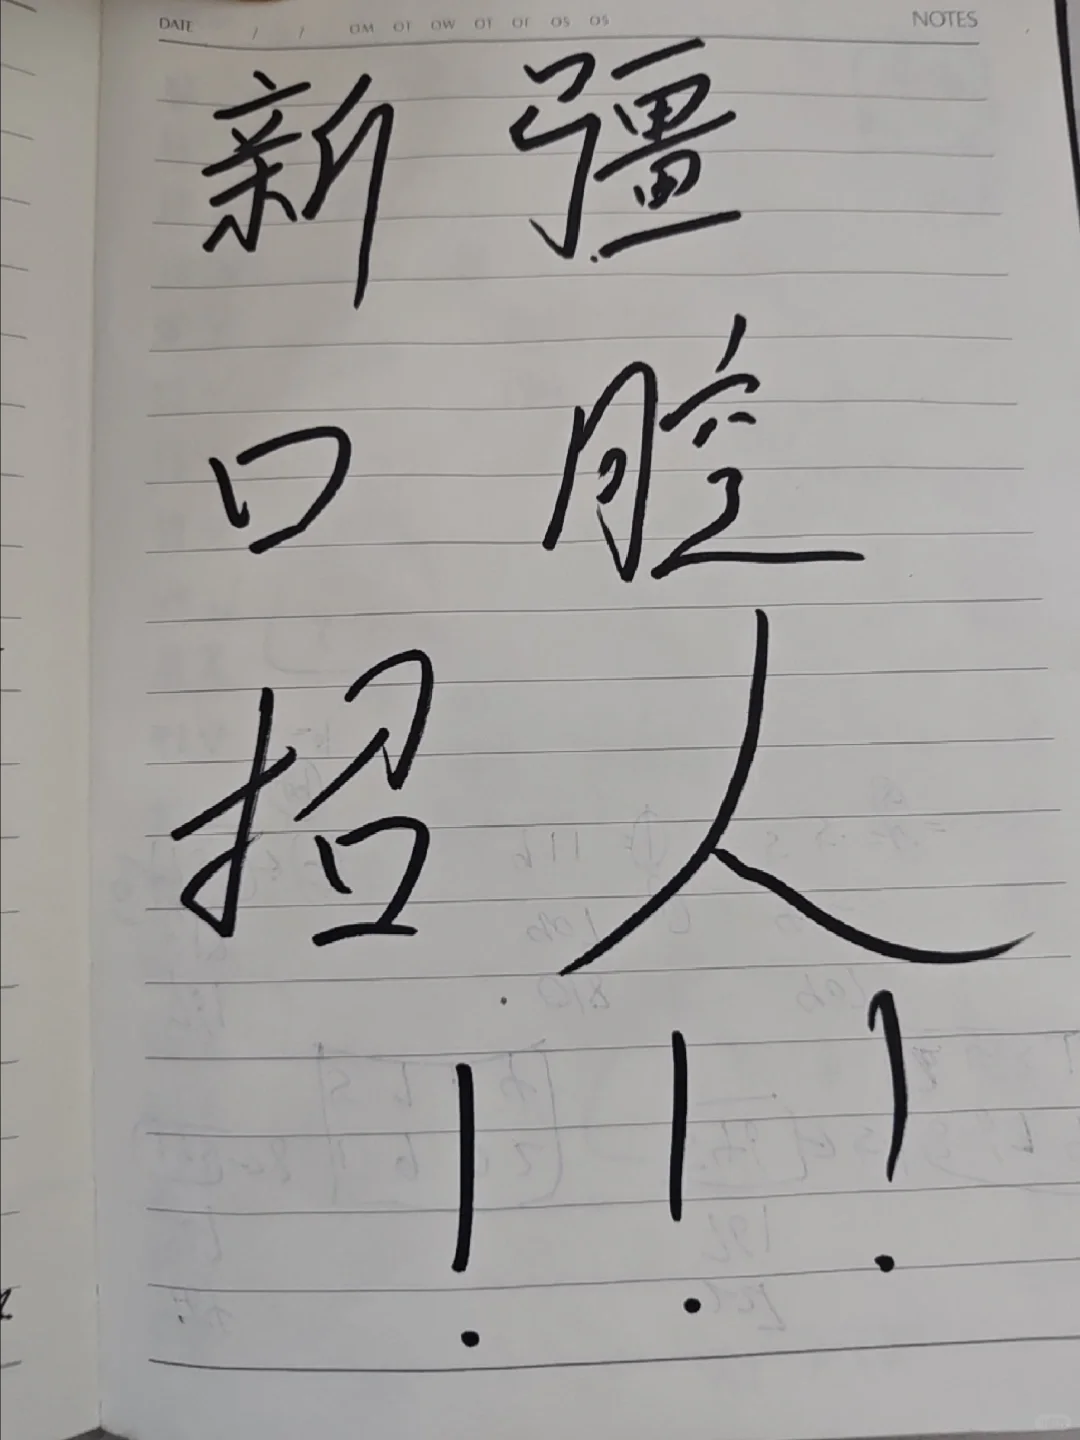 DATE / / OM OT OW OT OF OS OS NOTES
新疆
口腔
招人
!!!